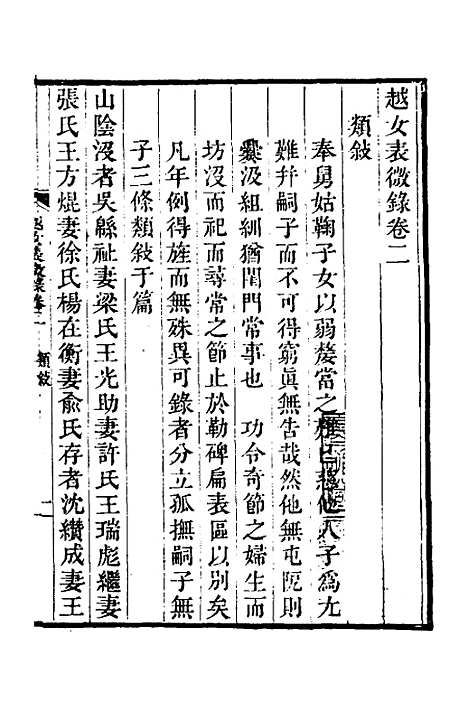 越女表微錄卷二
類敍
奉舅姑鞠子女以弱嫠當之難已慈他人子爲尢
難幷嗣子而不可得窮眞無告哉然他無屯阨則
爨汲組紃猶閨門常事也　功令奇節之婦生而
坊沒而祀而尋常之節止於勒碑扁表區以別矣
凡年例得旌而無殊異可錄者分立孤撫嗣子無
子三條類敍于篇
山陰沒者吳縣祉妻梁氏王光助妻許氏王瑞彪繼妻
張氏王方焜妻徐氏楊在衡妻兪氏存者沈纘成妻王
越女表微錄卷二　類敍　一